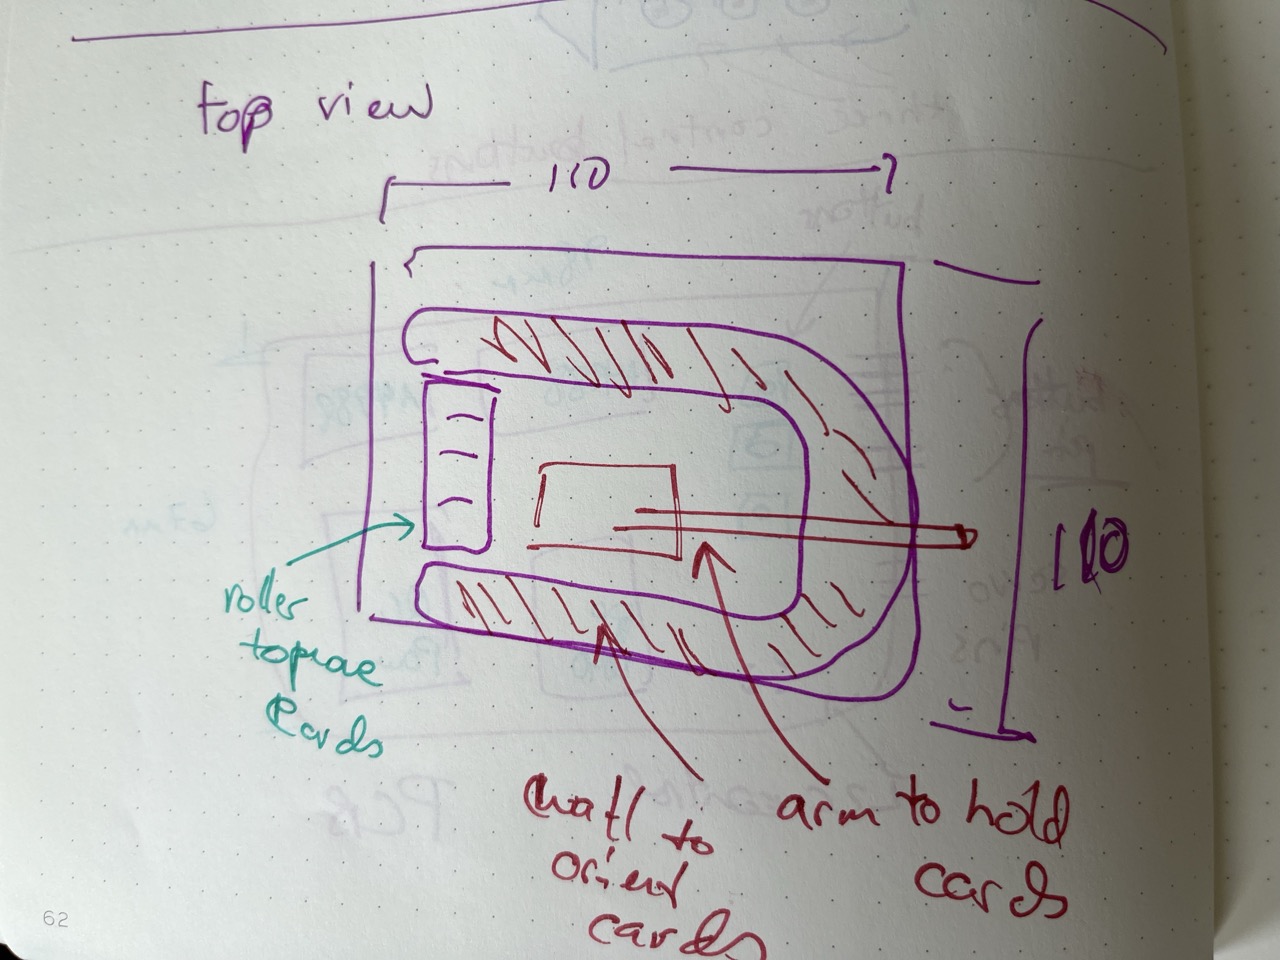 top view
110
110
roller
cards
arm to hold
cards
to
orient
cards
62